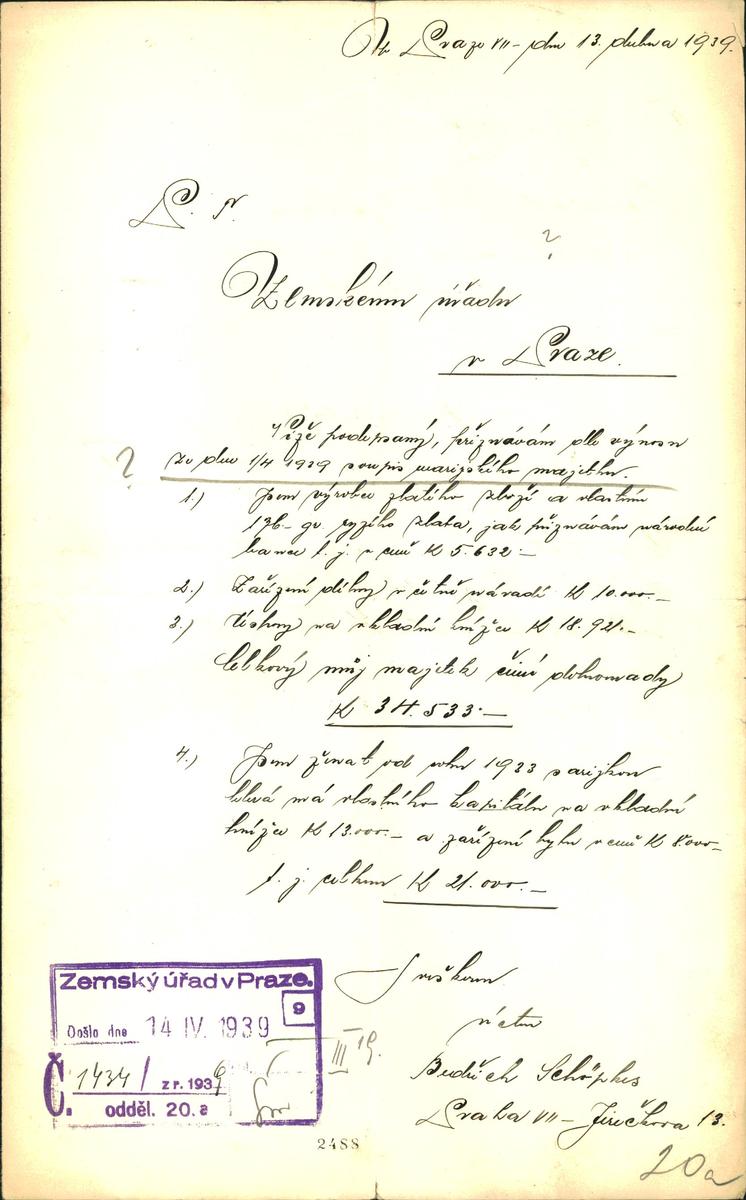 V Praze VII – dne 13. dubna 1939.
P. T.
?
Zemskému úřadu
v Praze.
Níže podepsaný, přiznávám dle výnosu
?
ze dne 1/4 1939 soupis marijského majetku.
1.) Jsem výrobce zlatého zboží a vlastním
136– gr. ryzího zlata, jak přiznávám národní
bance t. j. v ceně K 5.632–
2.) Zařízení dílny v četně nářadí K 10.000.–
3.) Úspory na vkladní knížce K 18.921.–
Celkový můj majetek činí dohromady
K 34.533–
4.) Jsem ženat od roku 1933 s arijkou
která má vlastního kapitálu na vkladní
knížce K 13.000.– a zařízení bytu v ceně K 8.000–
t. j. celkem K 21.000.–
S veškerou
úctou
Bedřich
Praha VII – Jirečkova 13.
Zemský úřad v Praze.
9
Došlo dne 14 IV. 1939
Č. 1434/ z r. 1939
odděl. 20.a
III 19.
2488
20a